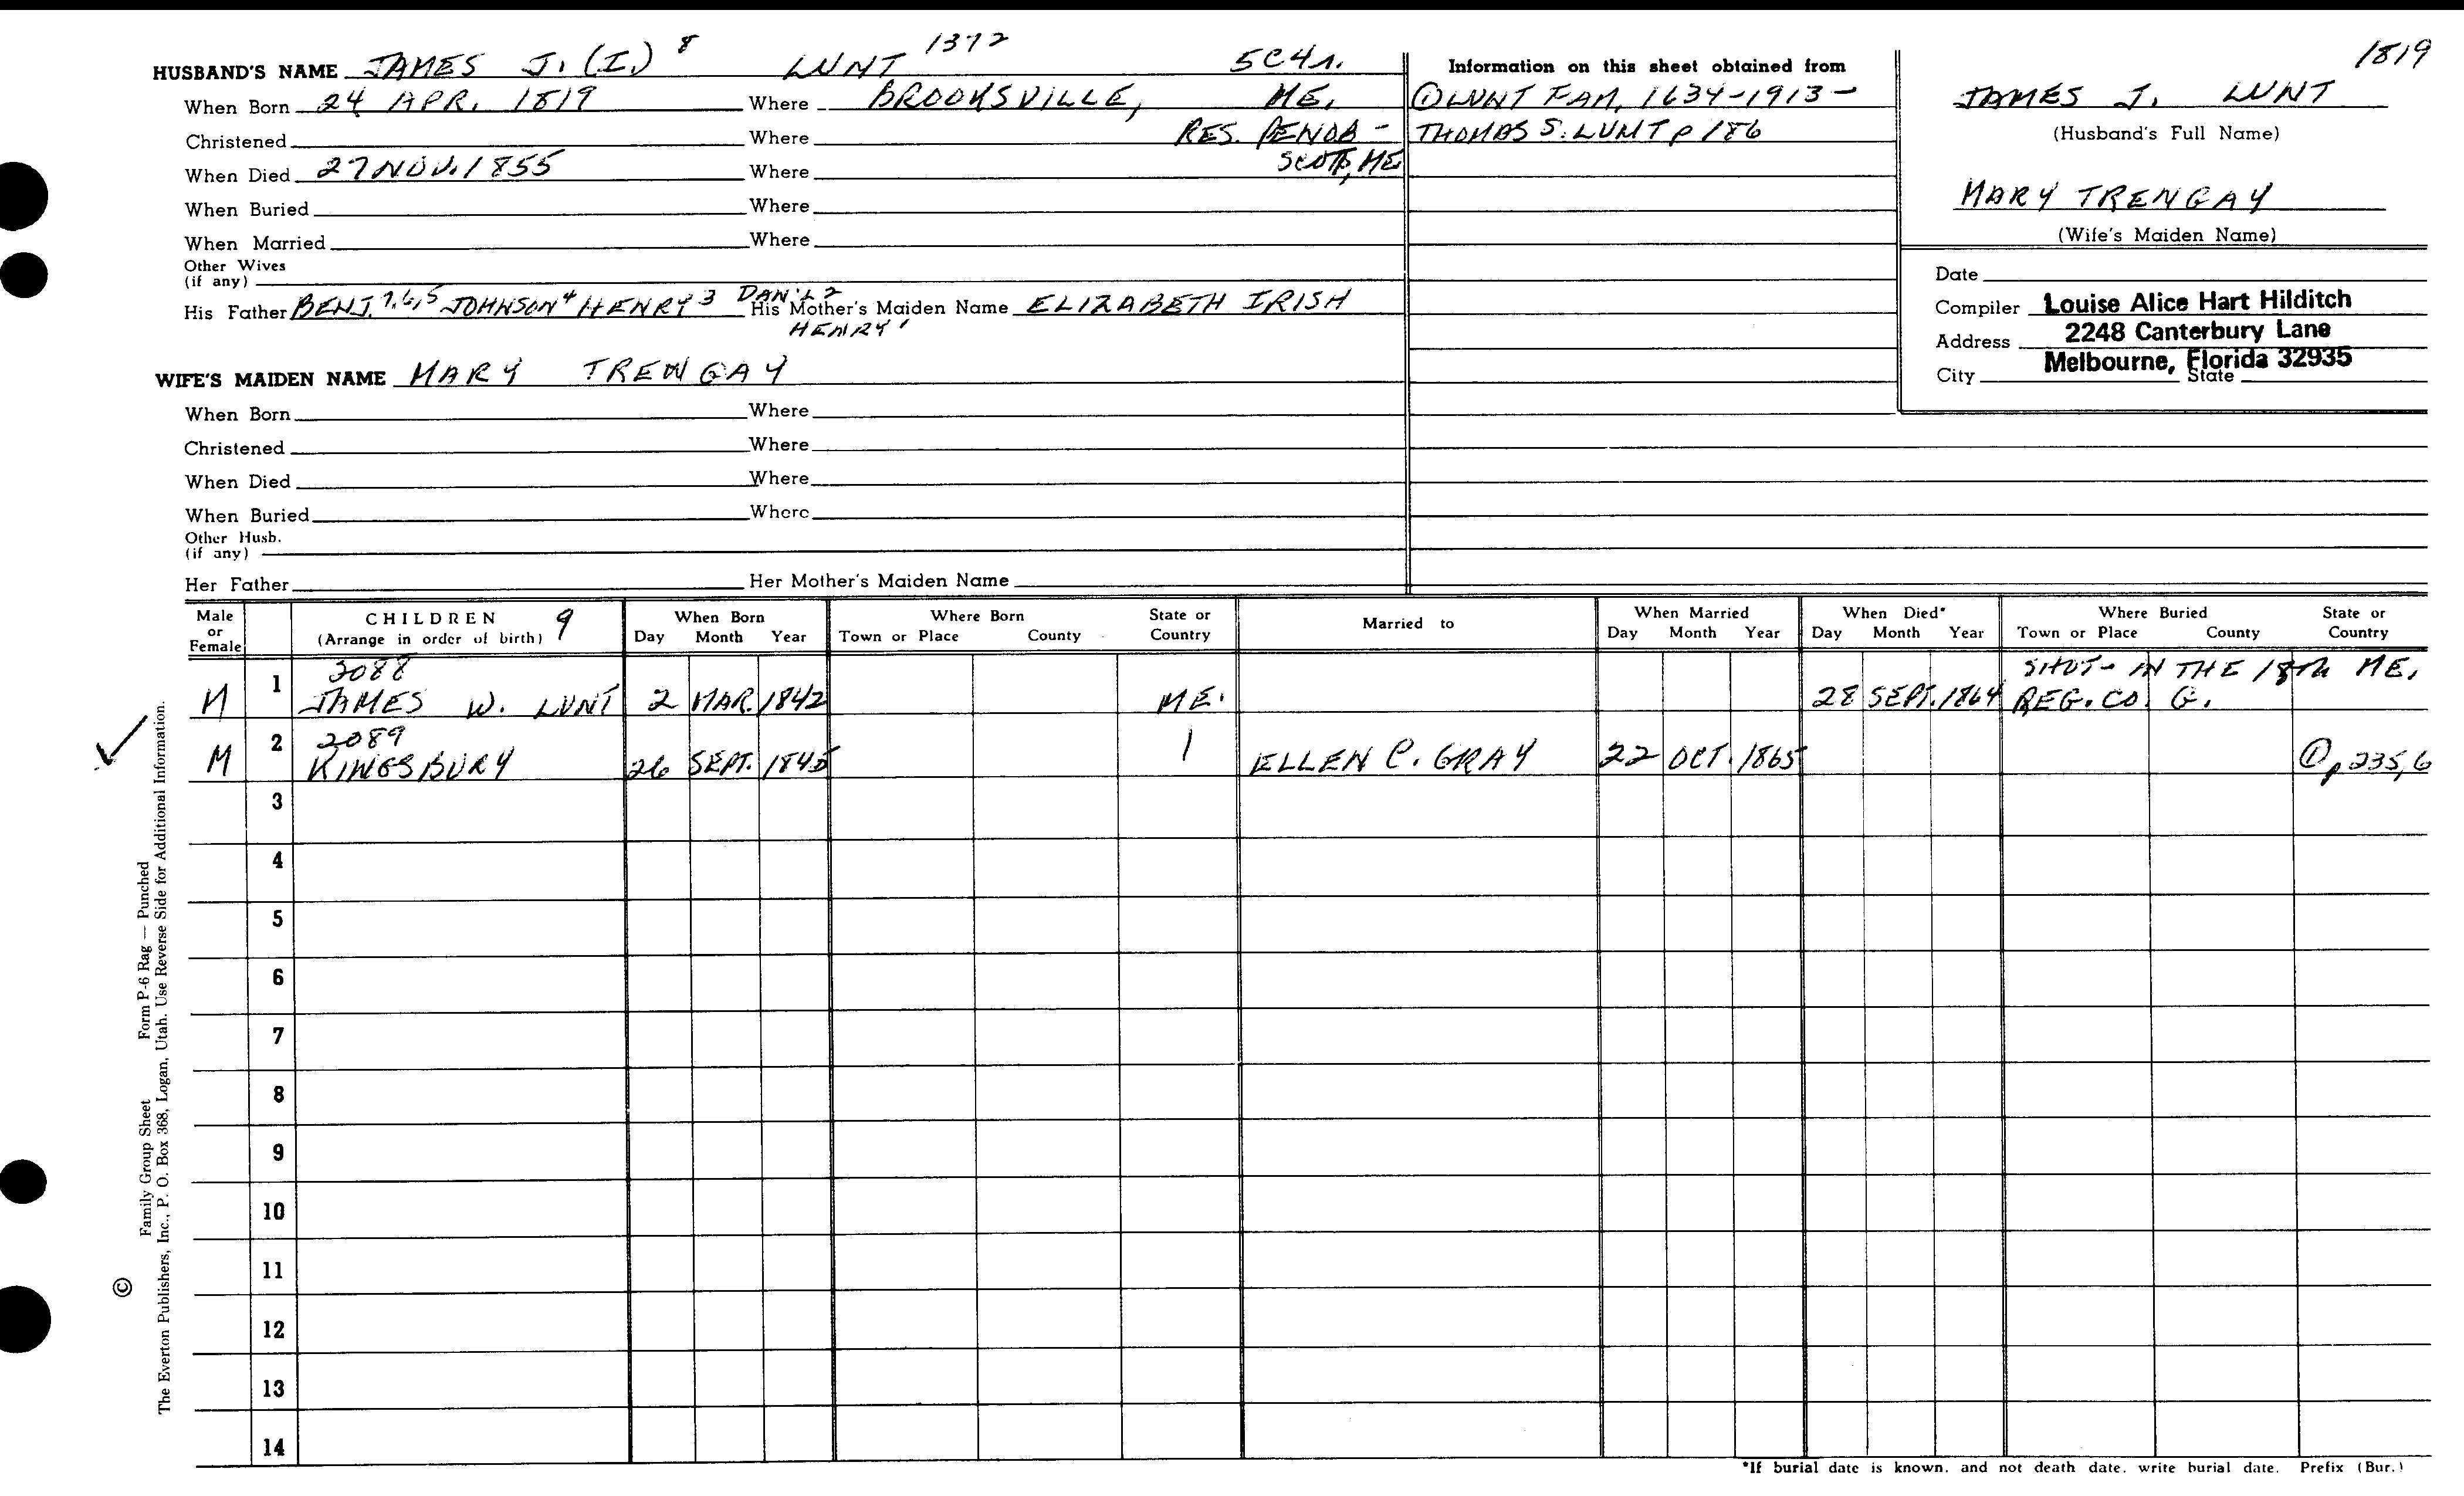 HUSBAND'S NAME JAMES J. (I.) 8 LUNT 1372 5C4r.
When Born 24 APR. 1819 Where BROOKSVILLE, ME.
Christened Where RES. PENOB-
When Died 27 NOV. 1855 Where SCOTT, ME
When Buried Where
When Married Where
Other Wives
(if any)
His Father BENJ. 7,6,5 JOHNSON 4 HENRY 3 DAN'L 2 His Mother's Maiden Name ELIZABETH IRISH
HENRY 1
WIFE'S MAIDEN NAME MARY TRENGAY
When Born Where
Christened Where
When Died Where
When Buried Where
Other Husb.
(if any)
Her Father Her Mother's Maiden Name
Information on this sheet obtained from
① LUNT FAM. 1634-1913-
THOMAS S. LUNT p 186
1819
JAMES J. LUNT
(Husband's Full Name)
MARY TRENGAY
(Wife's Maiden Name)
Date
Compiler Louise Alice Hart Hilditch
Address 2248 Canterbury Lane
Melbourne, Florida 32935
City State
Male or Female CHILDREN 9 (Arrange in order of birth) When Born Day Month Year Where Born Town or Place County State or Country Married to When Married Day Month Year When Died* Day Month Year Where Buried Town or Place County State or Country
2088 SHOT- IN THE 18th ME.
M 1 JAMES W. LUNT 2 MAR. 1842 ME. 28 SEPT. 1864 REG. CO. G.
2089
M 2 KINGSBURY 26 SEPT. 1845 | ELLEN C. GRAY 22 OCT. 1865 ① p 235,6
3
4
5
6
7
8
9
10
11
12
13
14
*If burial date is known, and not death date, write burial date. Prefix (Bur.)
Family Group Sheet Form P-6 Rag — Punched
© The Everton Publishers, Inc., P. O. Box 368, Logan, Utah. Use Reverse Side for Additional Information.